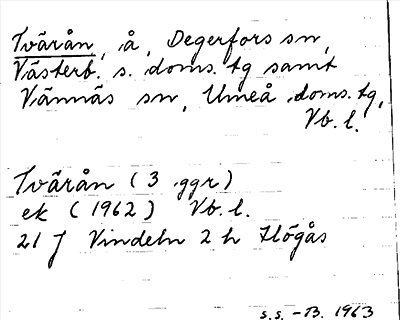 Tvärån, å, Degerfors sn,
Västerb. s. doms. tg samt
Vännäs sn, Umeå doms. tg,
Vb. l.
Tvärån (3 ggr)
ek (1962) Vb. l.
21 J Vindeln 2 h Högås
s.s. -B. 1963